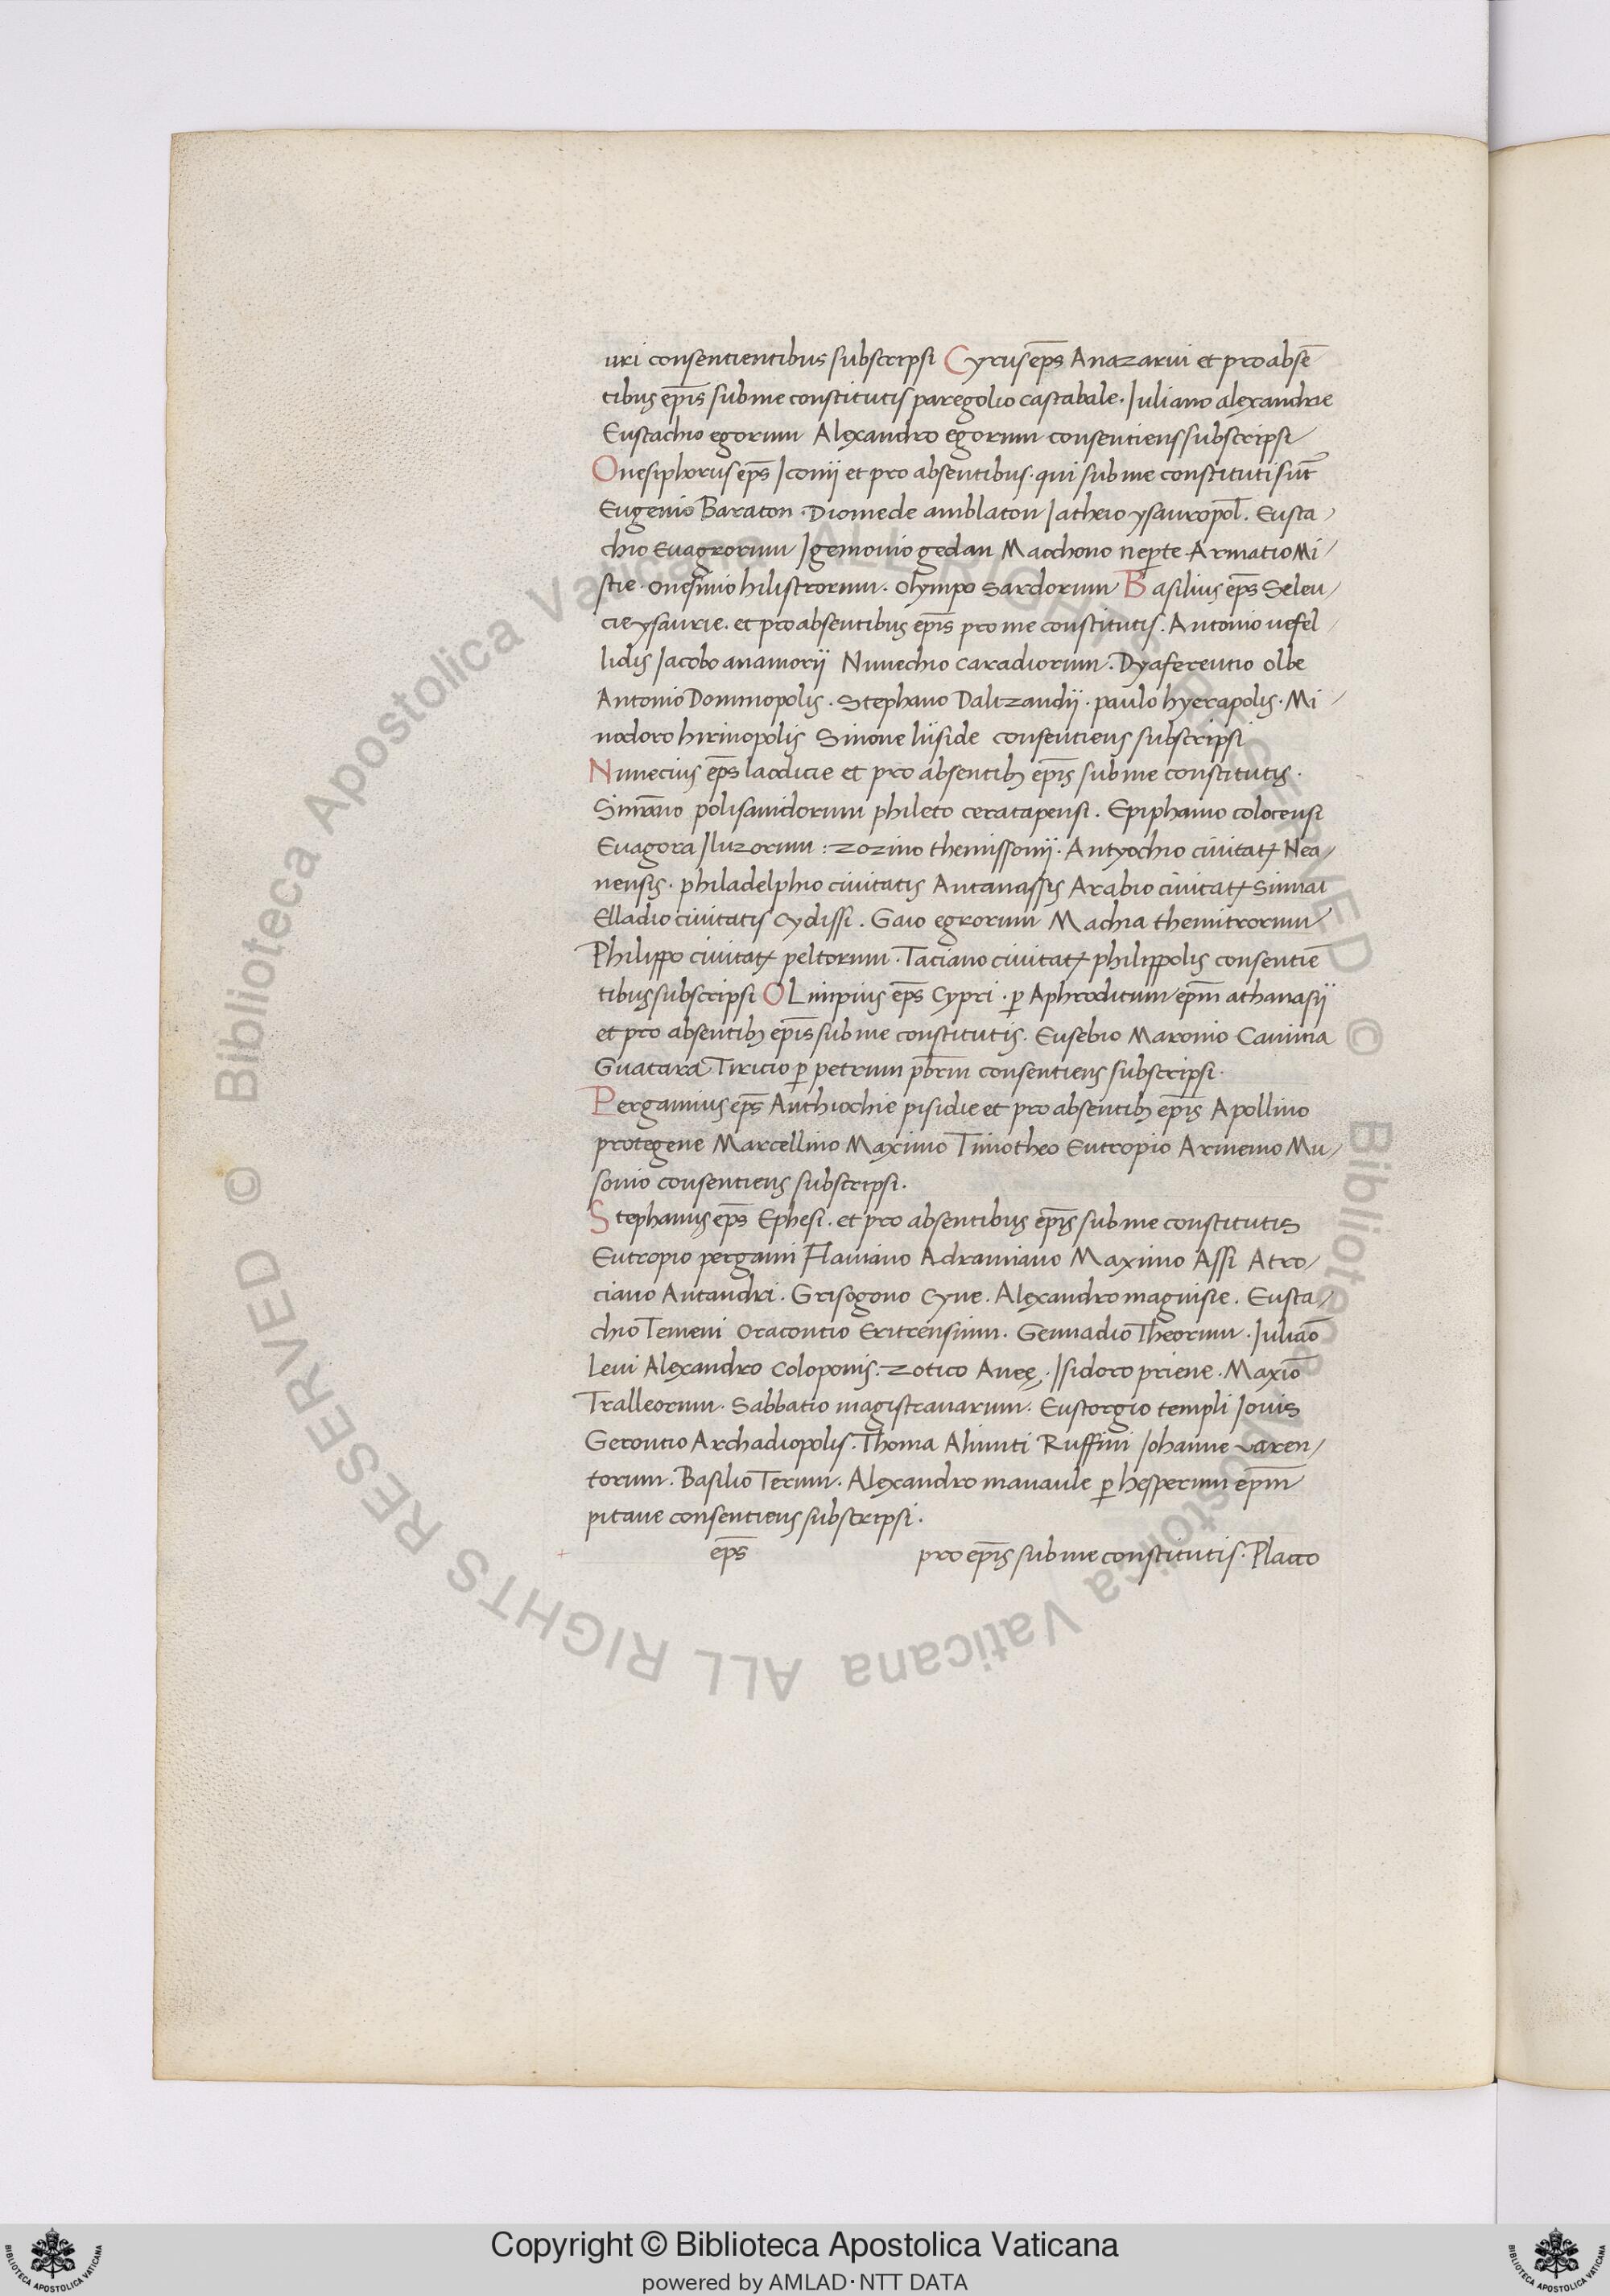 uri consentientibus subscripsi Cyrus ep̅s Anazarui et pro absē
tibus ep̅is sub me constitutis paregolio castabale. Iuliano alexandrie
Eustachio egorum Alexandro egorum consentiens subscripsi
Onesiphorus ep̅s Iconij et pro absentibus. qui sub me constituti sūt
Eugenio Baraton. Diomede amblaton Iatheio ysauropol̅. Eusta/
chio Euagrorum Igemonio gedan Macchono neꝑte Armatio Mi/
stie. onesimio hilistrorum. olympo Sardorum Basilius ep̅s Seleu/
cie ysaurie. et pro absentibus ep̅is pro me constitutis. Antonio uefel/
lidis Iacobo anamorij Nunechio caradiorum. Dyaferentio olbe
Antonio Domnopolis. Stephano Daltzandij. paulo hyerapolis. Mi/
nodoro hirinopolis Sinone liiside consentiens subscripsi
Nunecius ep̅s laodicie et pro absentibꝫ ep̅is sub me constitutis.
Simr̅anio polisanidorum phileto ceratapensi. Epiphanio colocensi
Euagora Iluzorum : zozino themissonij. Antyochio ciuitatꝭ Nea/
nensis. philadelphio ciuitatis Antanassis Arabio ciuitatꝭ Sinnai
Elladio ciuitatis Cydissi. Gaio egrorum Machia themitrorum
Philippo ciuitatꝭ peltorum. Taciano ciuitatꝭ philippolis consentiē
tibus subscripsi OLimpius ep̅s Cypri. ꝑ Aphroditum ep̅m athanasij
et pro absentibꝫ ep̅is sub me constitutis. Eusebio Maronio Caninia
Guatara Tiricio ꝑ petrum pb̅rm consentiens subscripsi.
Pergamius ep̅s Anthiochie pisidie et pro absentibꝫ ep̅is Apollino
protegene Marcellino Maximo Timotheo Eutropio Armenio Mu/
sonio consentiens subscripsi.
Stephanus ep̅s Ephesi. et pro absentibus ep̅is sub me constitutis
Eutropio pergami Flauiano Adramiano Maximo Assi Atro/
ciano Antandri. Grisogono Cyne. Alexandro magnisie. Eusta/
chio Temeni Oracontio Eritrensium. Gennadio Theorum. Juliāo
Leui Alexandro Coloponis. zotico Aneę. Isidoro priene. Maxiō
Tralleorum. Sabbatio magistranarum. Eustorgio templi Iouis
Gerontio Archadiopolis. Thoma Aliunti Ruffini Iohanne uaren/
torum. Basilio Terum. Alexandro manaule ꝑ hesperum ep̅m
pitane consentiens subscripsi.
+ ep̅s pro ep̅is sub me constitutis. Placco
© Biblioteca Apostolica Vaticana ALL RIGHTS RESERVED © Biblioteca Apostolica Vaticana ALL RIGHTS RESERVED
Copyright © Biblioteca Apostolica Vaticana
powered by AMLAD・NTT DATA
BIBLIOTECA APOSTOLICA VATICANA
BIBLIOTECA APOSTOLICA VATICANA